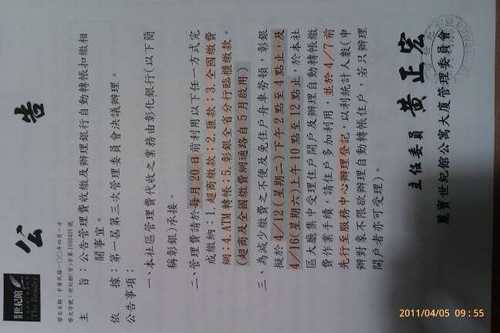 公告
主　旨：公告管理費收繳及辦理銀行自動轉帳扣繳相
關事宜。
依　據：第一屆第三次管理委員會決議辦理。
公告事項：
一、本社區管理費代收之業務由彰化銀行(以下簡
稱彰銀)承接。
二、管理費請於每月20日前利用以下任一方式完
成繳納：1.超商繳款；2.匯款；3.全國繳費
網；4.ATM轉帳；5.彰銀全省分行臨櫃繳款。
(超商及全國繳費網通路自5月啟用)
三、為減少繳費之不便及免住戶舟車勞頓，彰銀
擬於4/12(星期二)下午2點至4點止，及
4/16(星期六)上午10點至12點止，於本社
區大廳集中受理住戶開戶及辦理自動轉帳繳
費作業手續，請住戶多加利用，並於4/7前
先行至服務中心辦理登記，以利統計人數(申
辦對象不限欲辦理自動轉帳住戶，若只辦理
開戶者亦可受理)。
麗寶世紀館公寓大廈管理委員會
主任委員 黃正宏
世紀館
2011/04/05 09:55